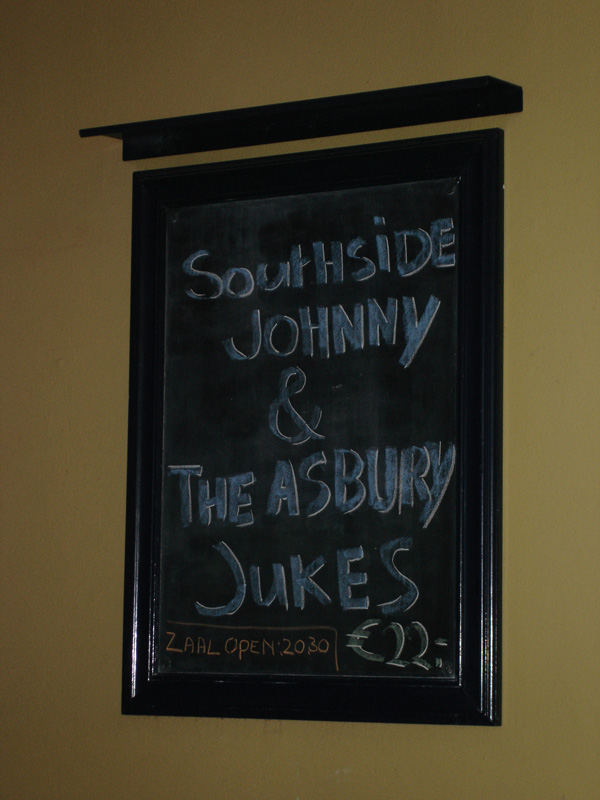 SOUTHSiDE
JOHNNY
&
THE ASBURY
JUKES
ZAAL OPEN: 20.30 €22,=